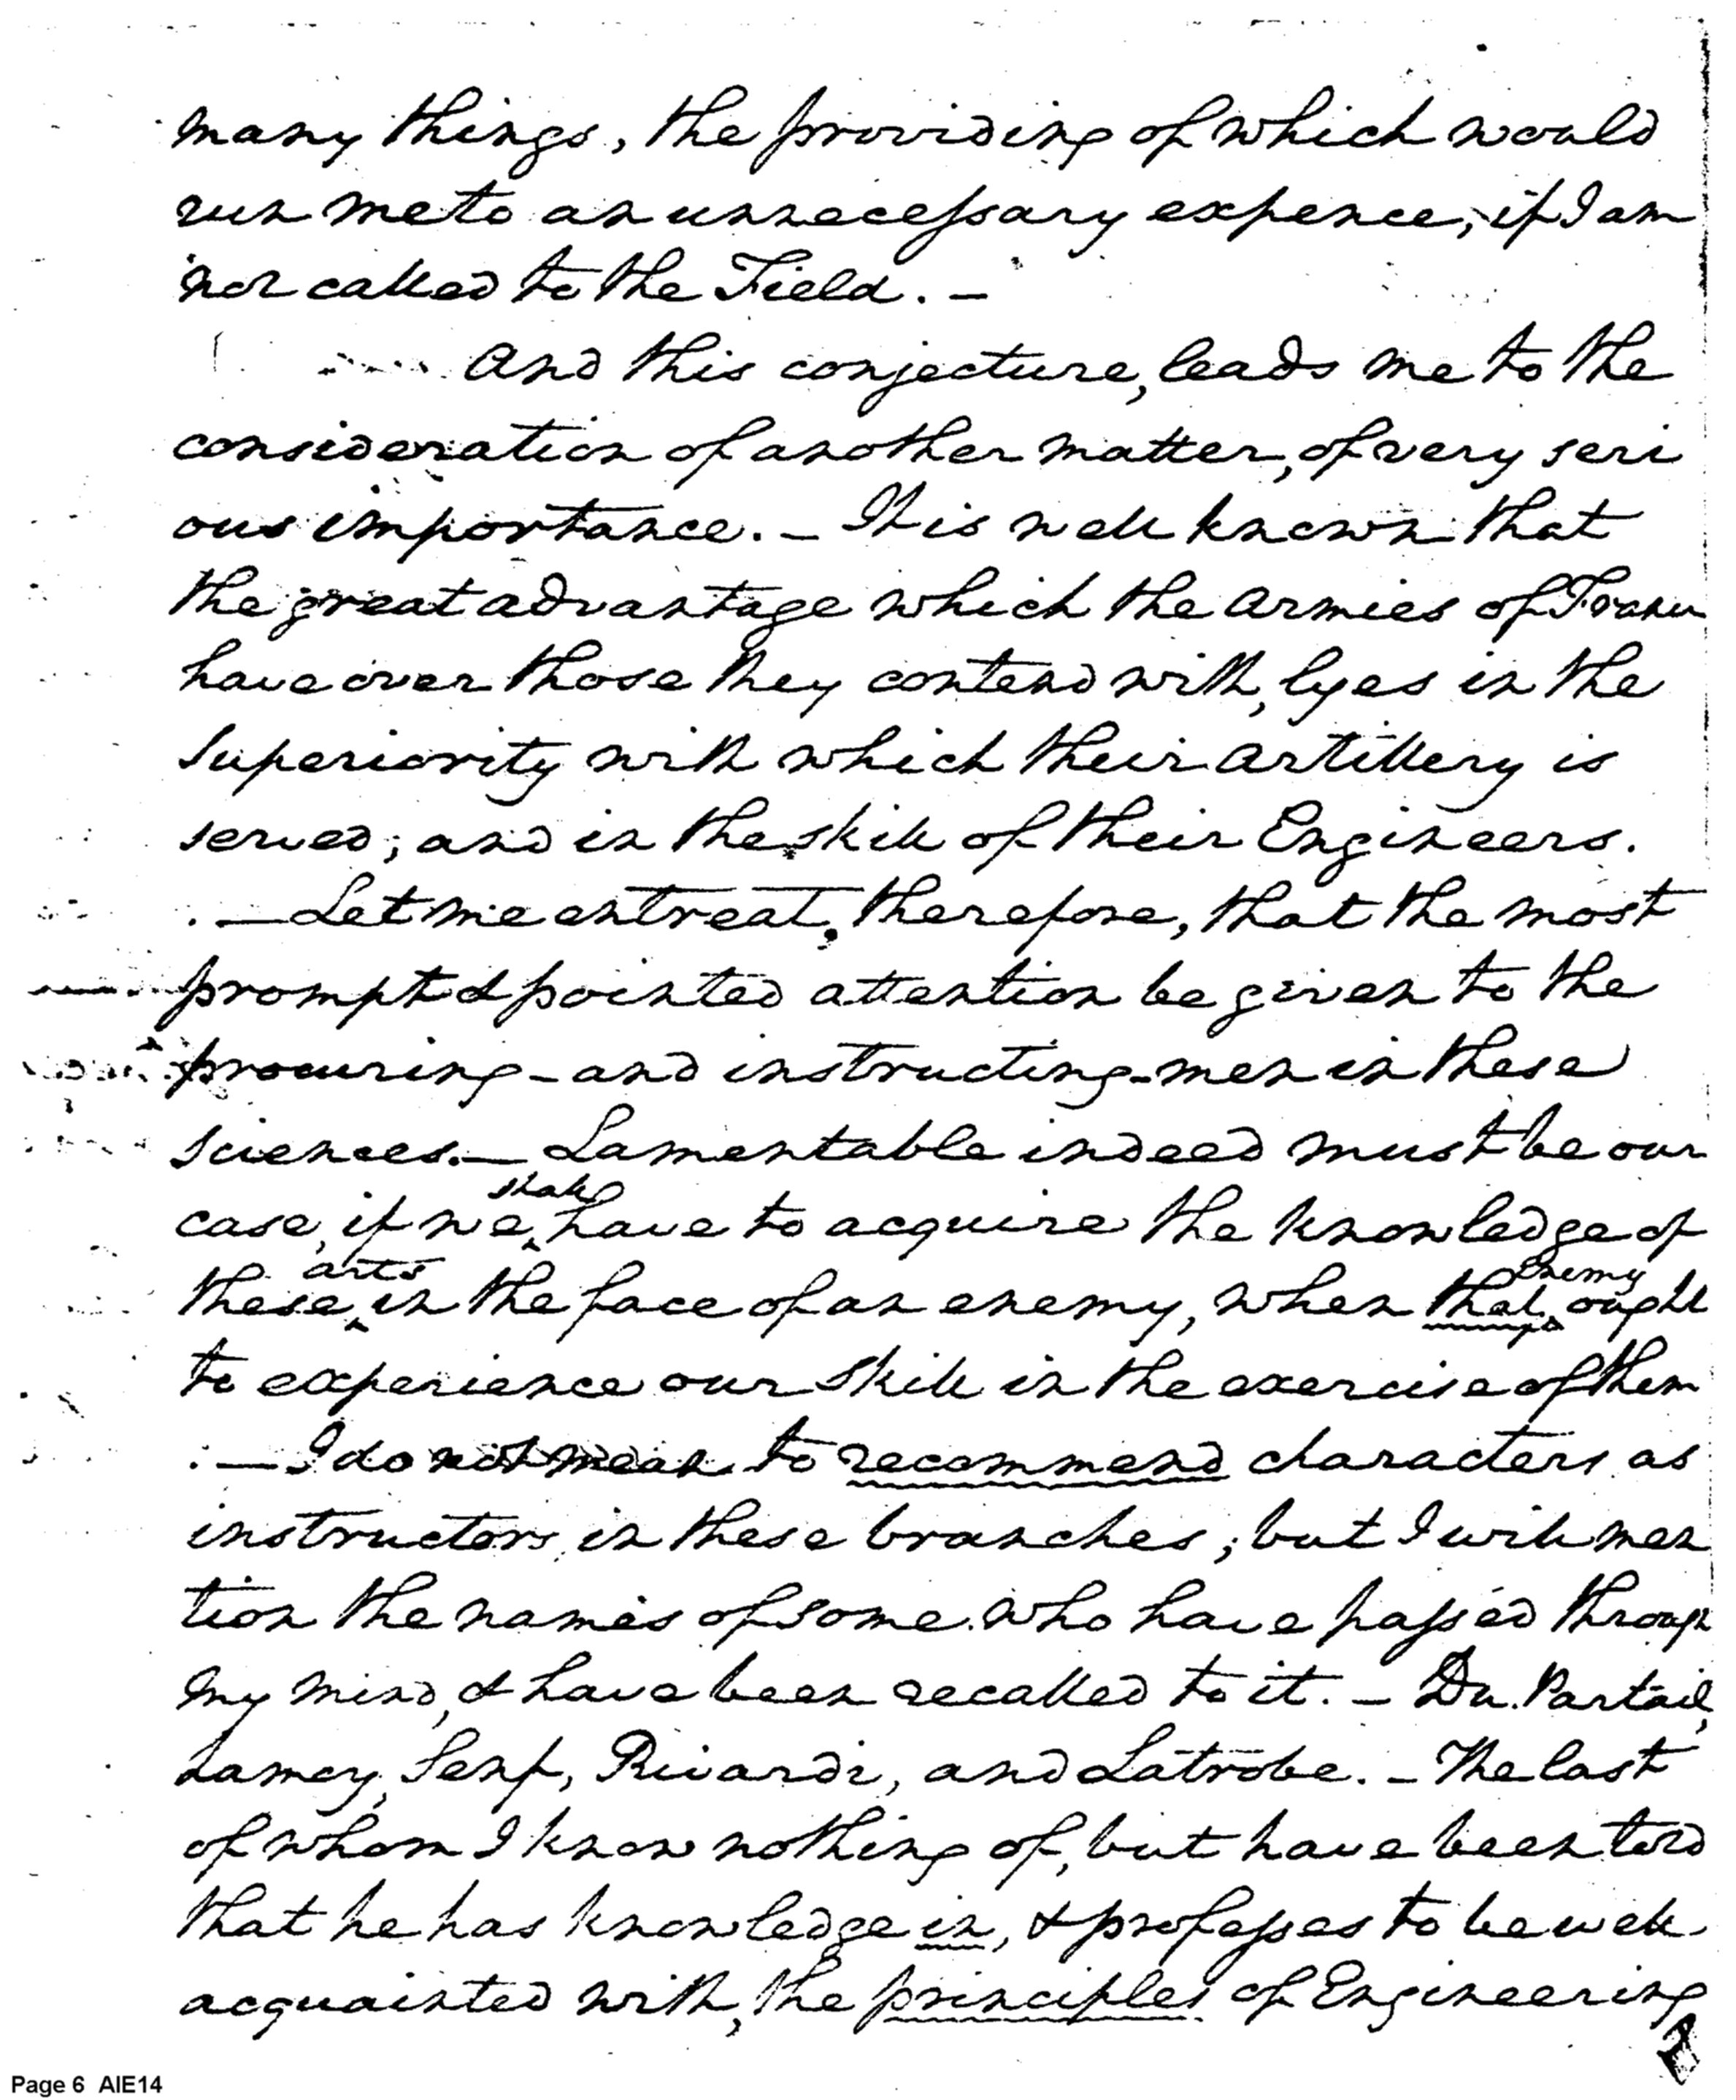 many things, the providing of which would
run me to an unnecessary expence, if I am
not called to the Field. —
And this conjecture, leads me to the
consideration of another matter, of very seri
ous importance. — It is well known that
the great advantage which the Armies of France
have over those they contend with, lyes in the
superiority with which their Artillery is
served; and in the skill of their Engineers.
— Let me entreat, therefore, that the most
prompt & pointed attention be given to the
procuring - and instructing - men in these
Sciences. — Lamentable indeed must be our
shall
case, if we ^ have to acquire the knowledge of
arts enemy
these ^ in the face of an enemy, when that ^ ought
to experience our skill in the exercise of them
— I do not mean to recommend characters as
instructors in these branches; but I will men
tion the names of some who have passed through
my mind, & have been recalled to it. — Du. Partail,
Lamoy, Senf, Rivardi, and Latrobe. — The last
of whom I know nothing of, but have been told
that he has knowledge in, & professes to be well
acquainted with, the principles of Engineering
Page 6 AIE14